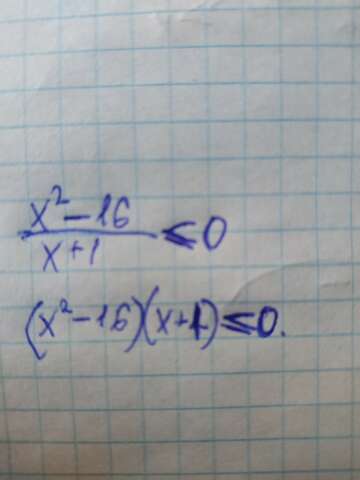 x²-16
x+1 ≤0
(x²-16)(x+1)≤0.